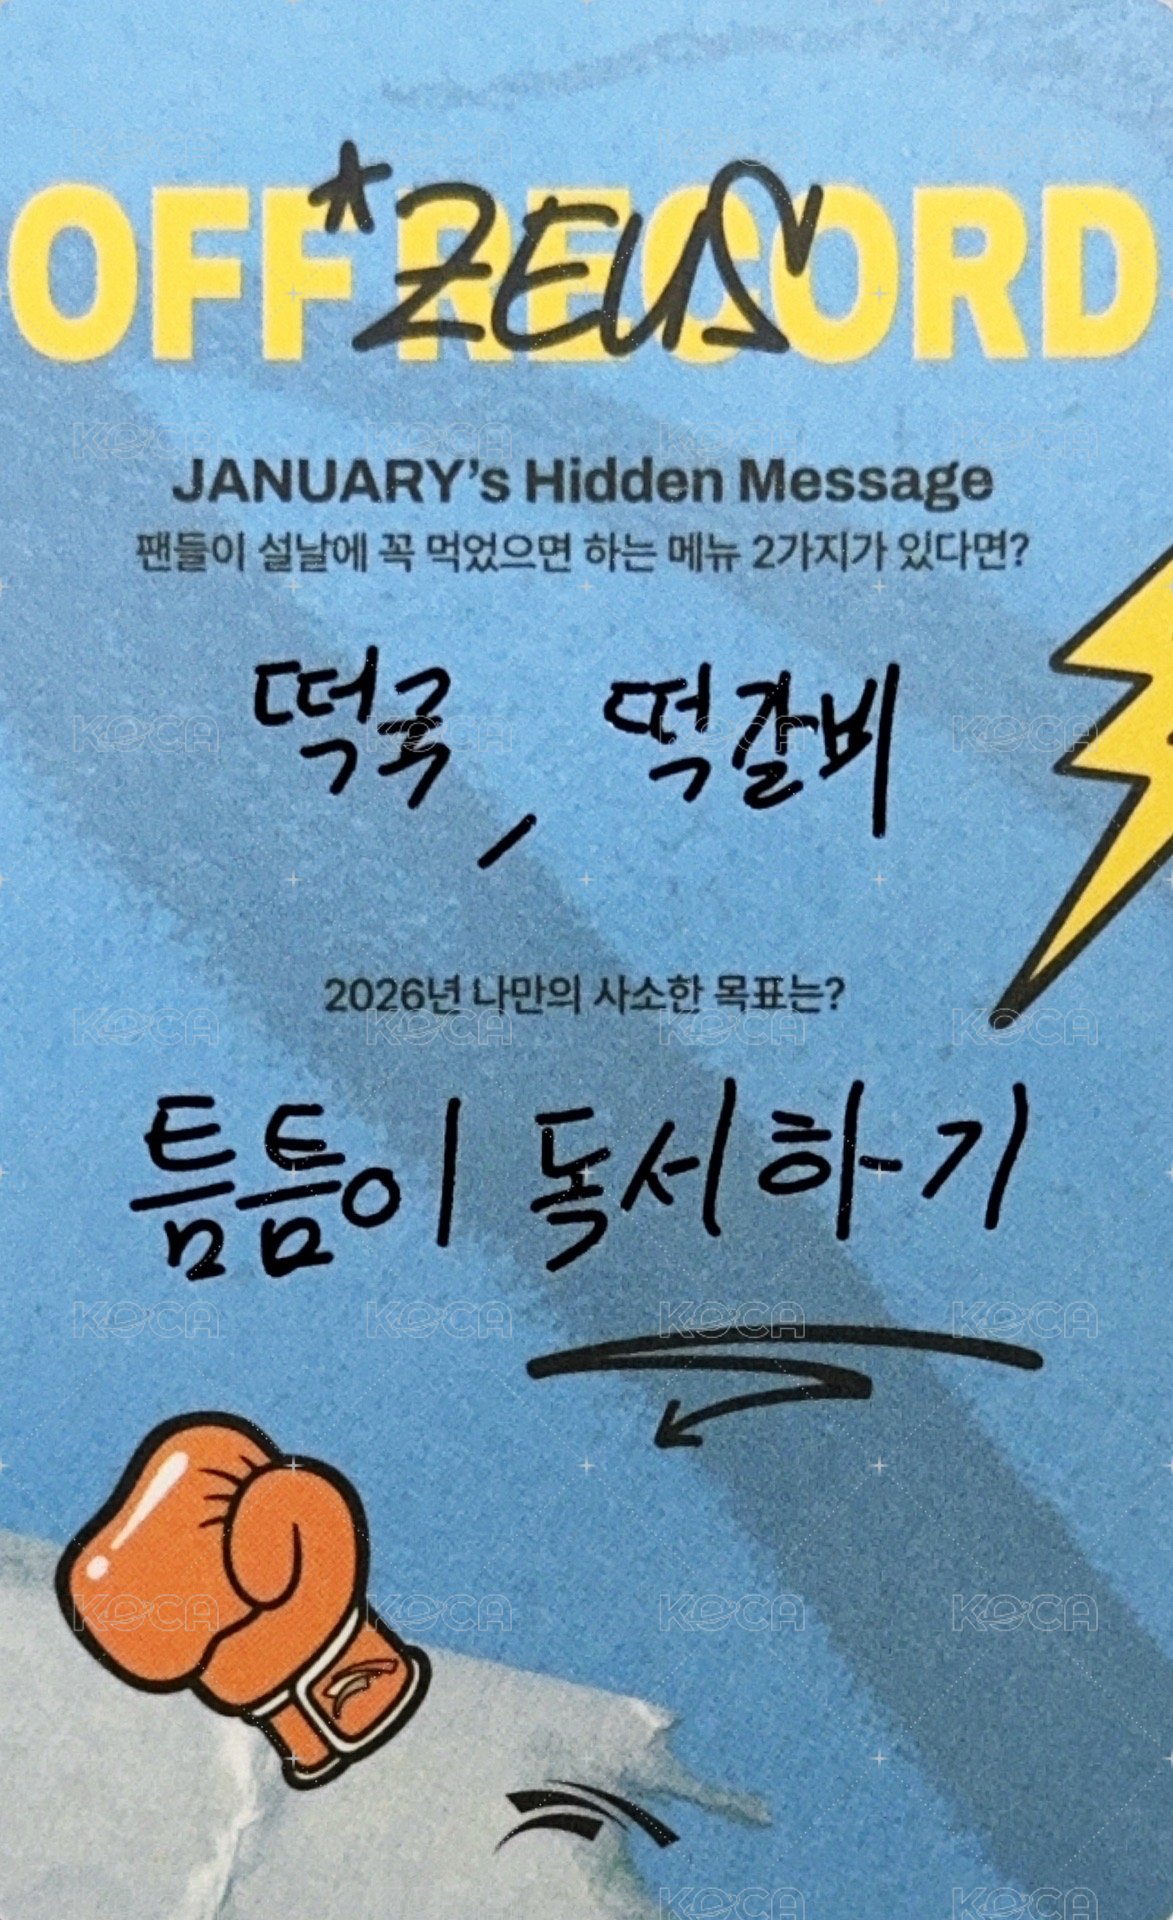 OFF RECORD
*ZEUS
JANUARY's Hidden Message
팬들이 설날에 꼭 먹었으면 하는 메뉴 2가지가 있다면?
떡국, 떡갈비
2026년 나만의 사소한 목표는?
틈틈이 독서하기
KOCA